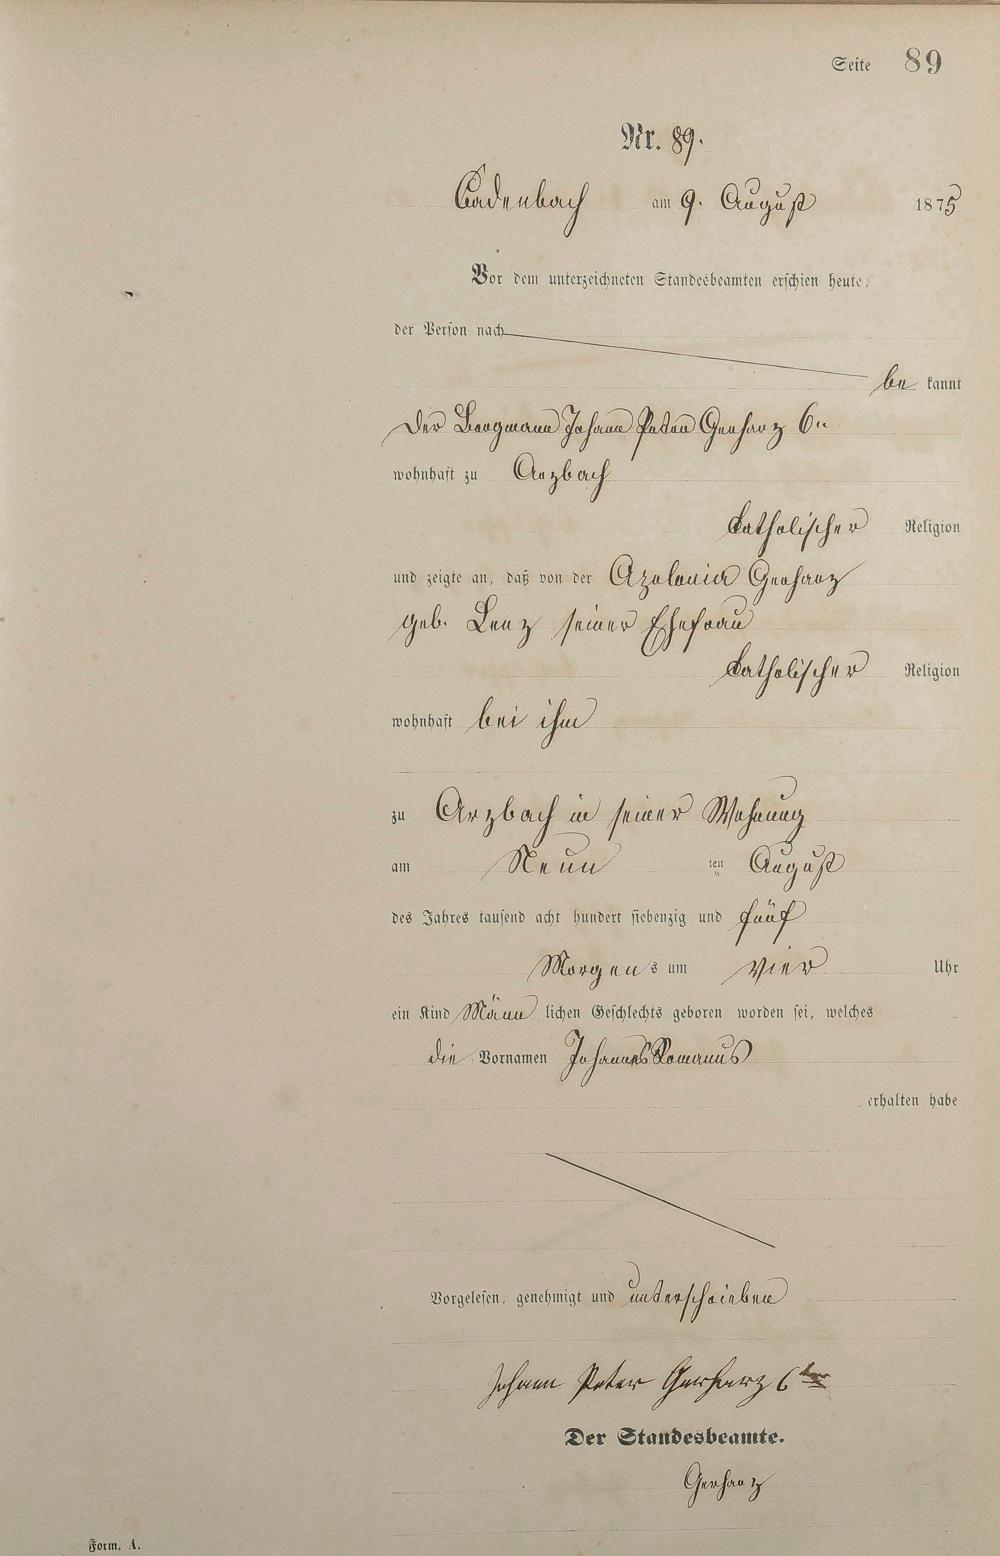 Seite 89
Nr. 89.
Cadenbach am 9. August 1875
Vor dem unterzeichneten Standesbeamten erschien heute,
der Person nach
be kannt
der Bergmann Johann Peter Gerharz 6r
wohnhaft zu Arzbach
katholischer Religion
und zeigte an, daß von der Apolonia Gerharz
geb. Lenz seiner Ehefrau
katholischer Religion
wohnhaft bei ihm
zu Arzbach in seiner Wohnung
am Neun ten August
des Jahres tausend acht hundert siebenzig und fünf
Morgen s um vier Uhr
ein Kind Männ lichen Geschlechts geboren worden sei, welches
die Vornamen Johannes Romanus
erhalten habe
Vorgelesen, genehmigt und unterschrieben
Johann Peter Gerharz 6ter
Der Standesbeamte.
Gerharz
Form. A.